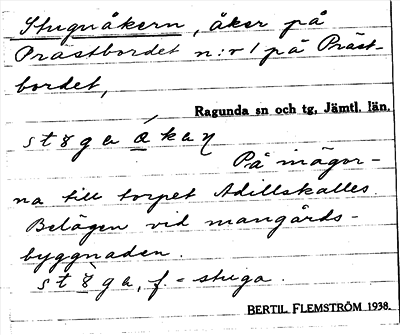 Stuguåkern, åker på
Prästbordet n:r 1 på Präst-
bordet,
Ragunda sn och tg, Jämtl. län.
På mägor-
na till torpet Adillskalles.
Belägen vid mangårds-
byggnaden.
f. = stuga.
BERTIL FLEMSTRÖM 1938.